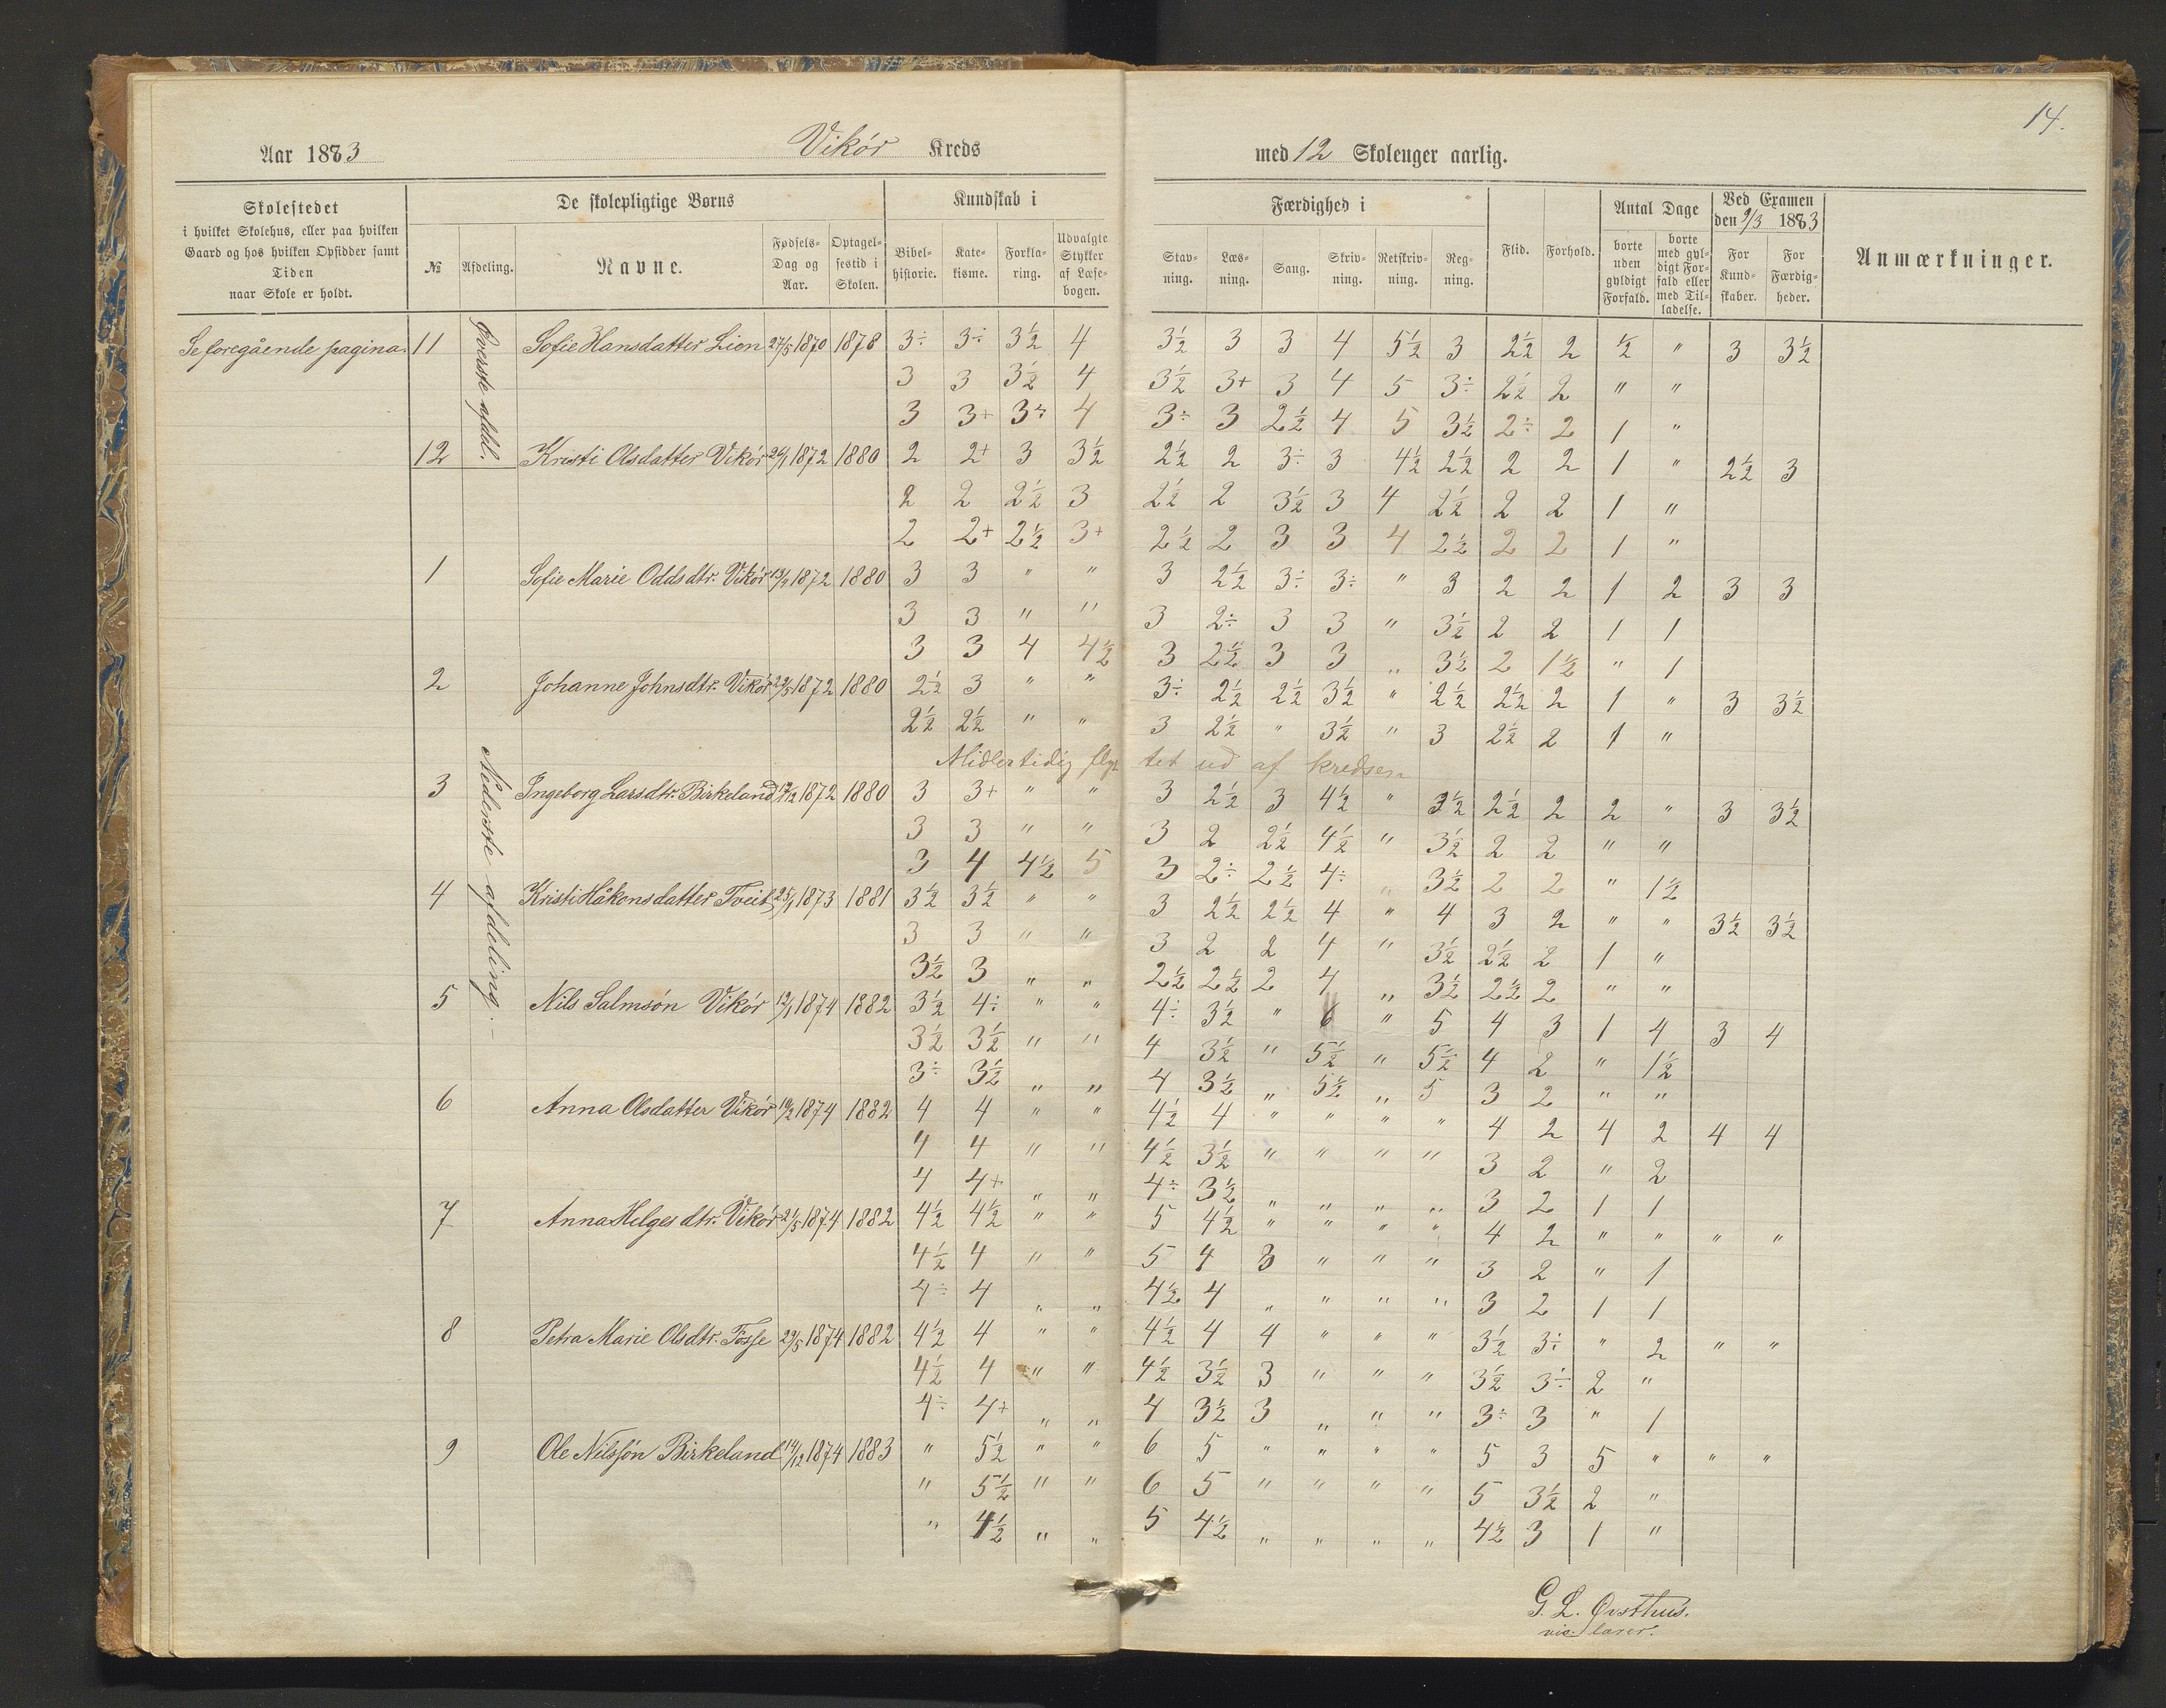 14.
Aar 1883 Vikór Kreds med 12 Skoleuger aarlig.
Skolestedet
i hvilket Skolehus, eller paa hvilken
Gaard og hos hvilken Opsidder samt
Tiden
naar Skole er holdt.
De skolepligtige Børns
№ Afdeling. Navne. Fødsels-Dag og Aar. Optagel-sestid i Skolen.
Kundskab i
Bibel-historie. Kate-kisme. Forkla-ring. Udvalgte Stykker af Læse-bogen.
Færdighed i
Stav-ning. Læs-ning. Sang. Skriv-ning. Retskriv-ning. Reg-ning.
Flid. Forhold.
Antal Dage
borte uden gyldigt Forfald. borte med gyl-digt For-fald eller med Til-ladelse.
Ved Examen den 9/3 1883
For Kund-skaber. For Færdig-heder.
Anmærkninger.
Se foregående pagina. 11 Øverste afdel. Sofie Hansdatter Lien 27/5 1870 1878 3÷ 3÷ 3½ 4 3½ 3 3 4 5½ 3 2½ 2 ½ " 3 3½
3 3 3½ 4 3½ 3+ 3 4 5 3÷ 2½ 2 " "
3 3+ 3÷ 4 3÷ 3 2½ 4 5 3½ 2÷ 2 1 "
12 Kristi Olsdatter Vikór 1872 1880 2 2+ 3 3½ 2½ 2 3÷ 3 4½ 2½ 2 2 1 " 2½ 3
2 2 2½ 3 2½ 2 3½ 3 4 2½ 2 2 1 "
2 2+ 2½ 3+ 2½ 2 3 3 4 2½ 2 2 1 "
1 Sofie Marie Oddsdtr. Vikór 1872 1880 3 3 " " 3 2½ 3÷ 3÷ " 3 2 2 1 2 3 3
3 3 " " 3 2÷ 3 3 " 3½ 2 2 1 1
3 3 4 4½ 3 2½ 3 3 " 3½ 2 1½ " 1
2 Johanne Johnsdtr. Vikór 1872 1880 2½ 3 " " 3÷ 2½ 2½ 3½ " 2½ 2½ 2 1 " 3 3½
2½ 2½ " " 3 2½ " 3½ " 3 2½ 2 1 "
Midlertidig flyttet ud af kredsen
3 Nederste afdeling.- Ingeborg Larsdtr. Birkeland 1872 1880 3 3+ " " 3 2½ 3 4½ " 3½ 2½ 2 2 " 3 3½
3 3 " " 3 2 2½ 4½ " 3½ 2 2 " "
3 4 4½ 5 3 2÷ 2½ 4÷ " 3½ 2 2 " 1½
4 Kristi Håkonsdatter Tveit 25/1 1873 1881 3½ 3½ " " 3 2½ 2½ 4 " 4 3 2 " " 3½ 3½
3 3 " " 3 2 2 4 " 3½ 2½ 2 1 "
3½ 3 " " 2½ 2½ 2 4 " 3½ 2½ 2 " "
5 Nils Salmsón Vikór 12/1 1874 1882 3½ 4÷ " " 4÷ 3½ " 6 " 5 4 3 1 4 3 4
3½ 3½ " " 4 3½ " 5½ " 5½ 4 2 " 1½
3÷ 3½ " " 4 3½ " 5½ " 5 3 2 " "
6 Anna Olsdatter Vikór 19/2 1874 1882 4 4 " " 4½ 4 " " " " 4 2 4 2 4 4
4 4 " " 4½ 3½ " " " " 3 2 " 2
4 4+ " " 4÷ 3½ " " " " 3 2 1 1
7 Anna Helgesdtr. Vikór 21/5 1874 1882 4½ 4½ " " 5 4½ " " " " 4 2 " " " "
4½ 4 " " 5 4 3 " " " 3 2 " 1
4÷ 4 " " 4½ 4 " " " " 3 2 1 1
8 Petra Marie Olsdtr. Fosse 29/5 1874 1882 4½ 4 " " 4½ 4 4 " " " 3½ 3÷ " 2 " "
4½ 4 " " 4½ 3½ 3 " " " 3½ 3÷ 2 "
4÷ 4+ " " 4 3½ 3 " " " 3÷ 3 " 1
9 Ole Nilssón Birkeland 14/12 1874 1883 " 5½ " " 6 5 " " " " 5 3 5 " " "
" 5½ " " 6 5 " " " " 5 3½ 2 "
" 4½ " " 5 4½ " " " " 4½ 3 1 "
G. L. Øvsthus.
lærer.